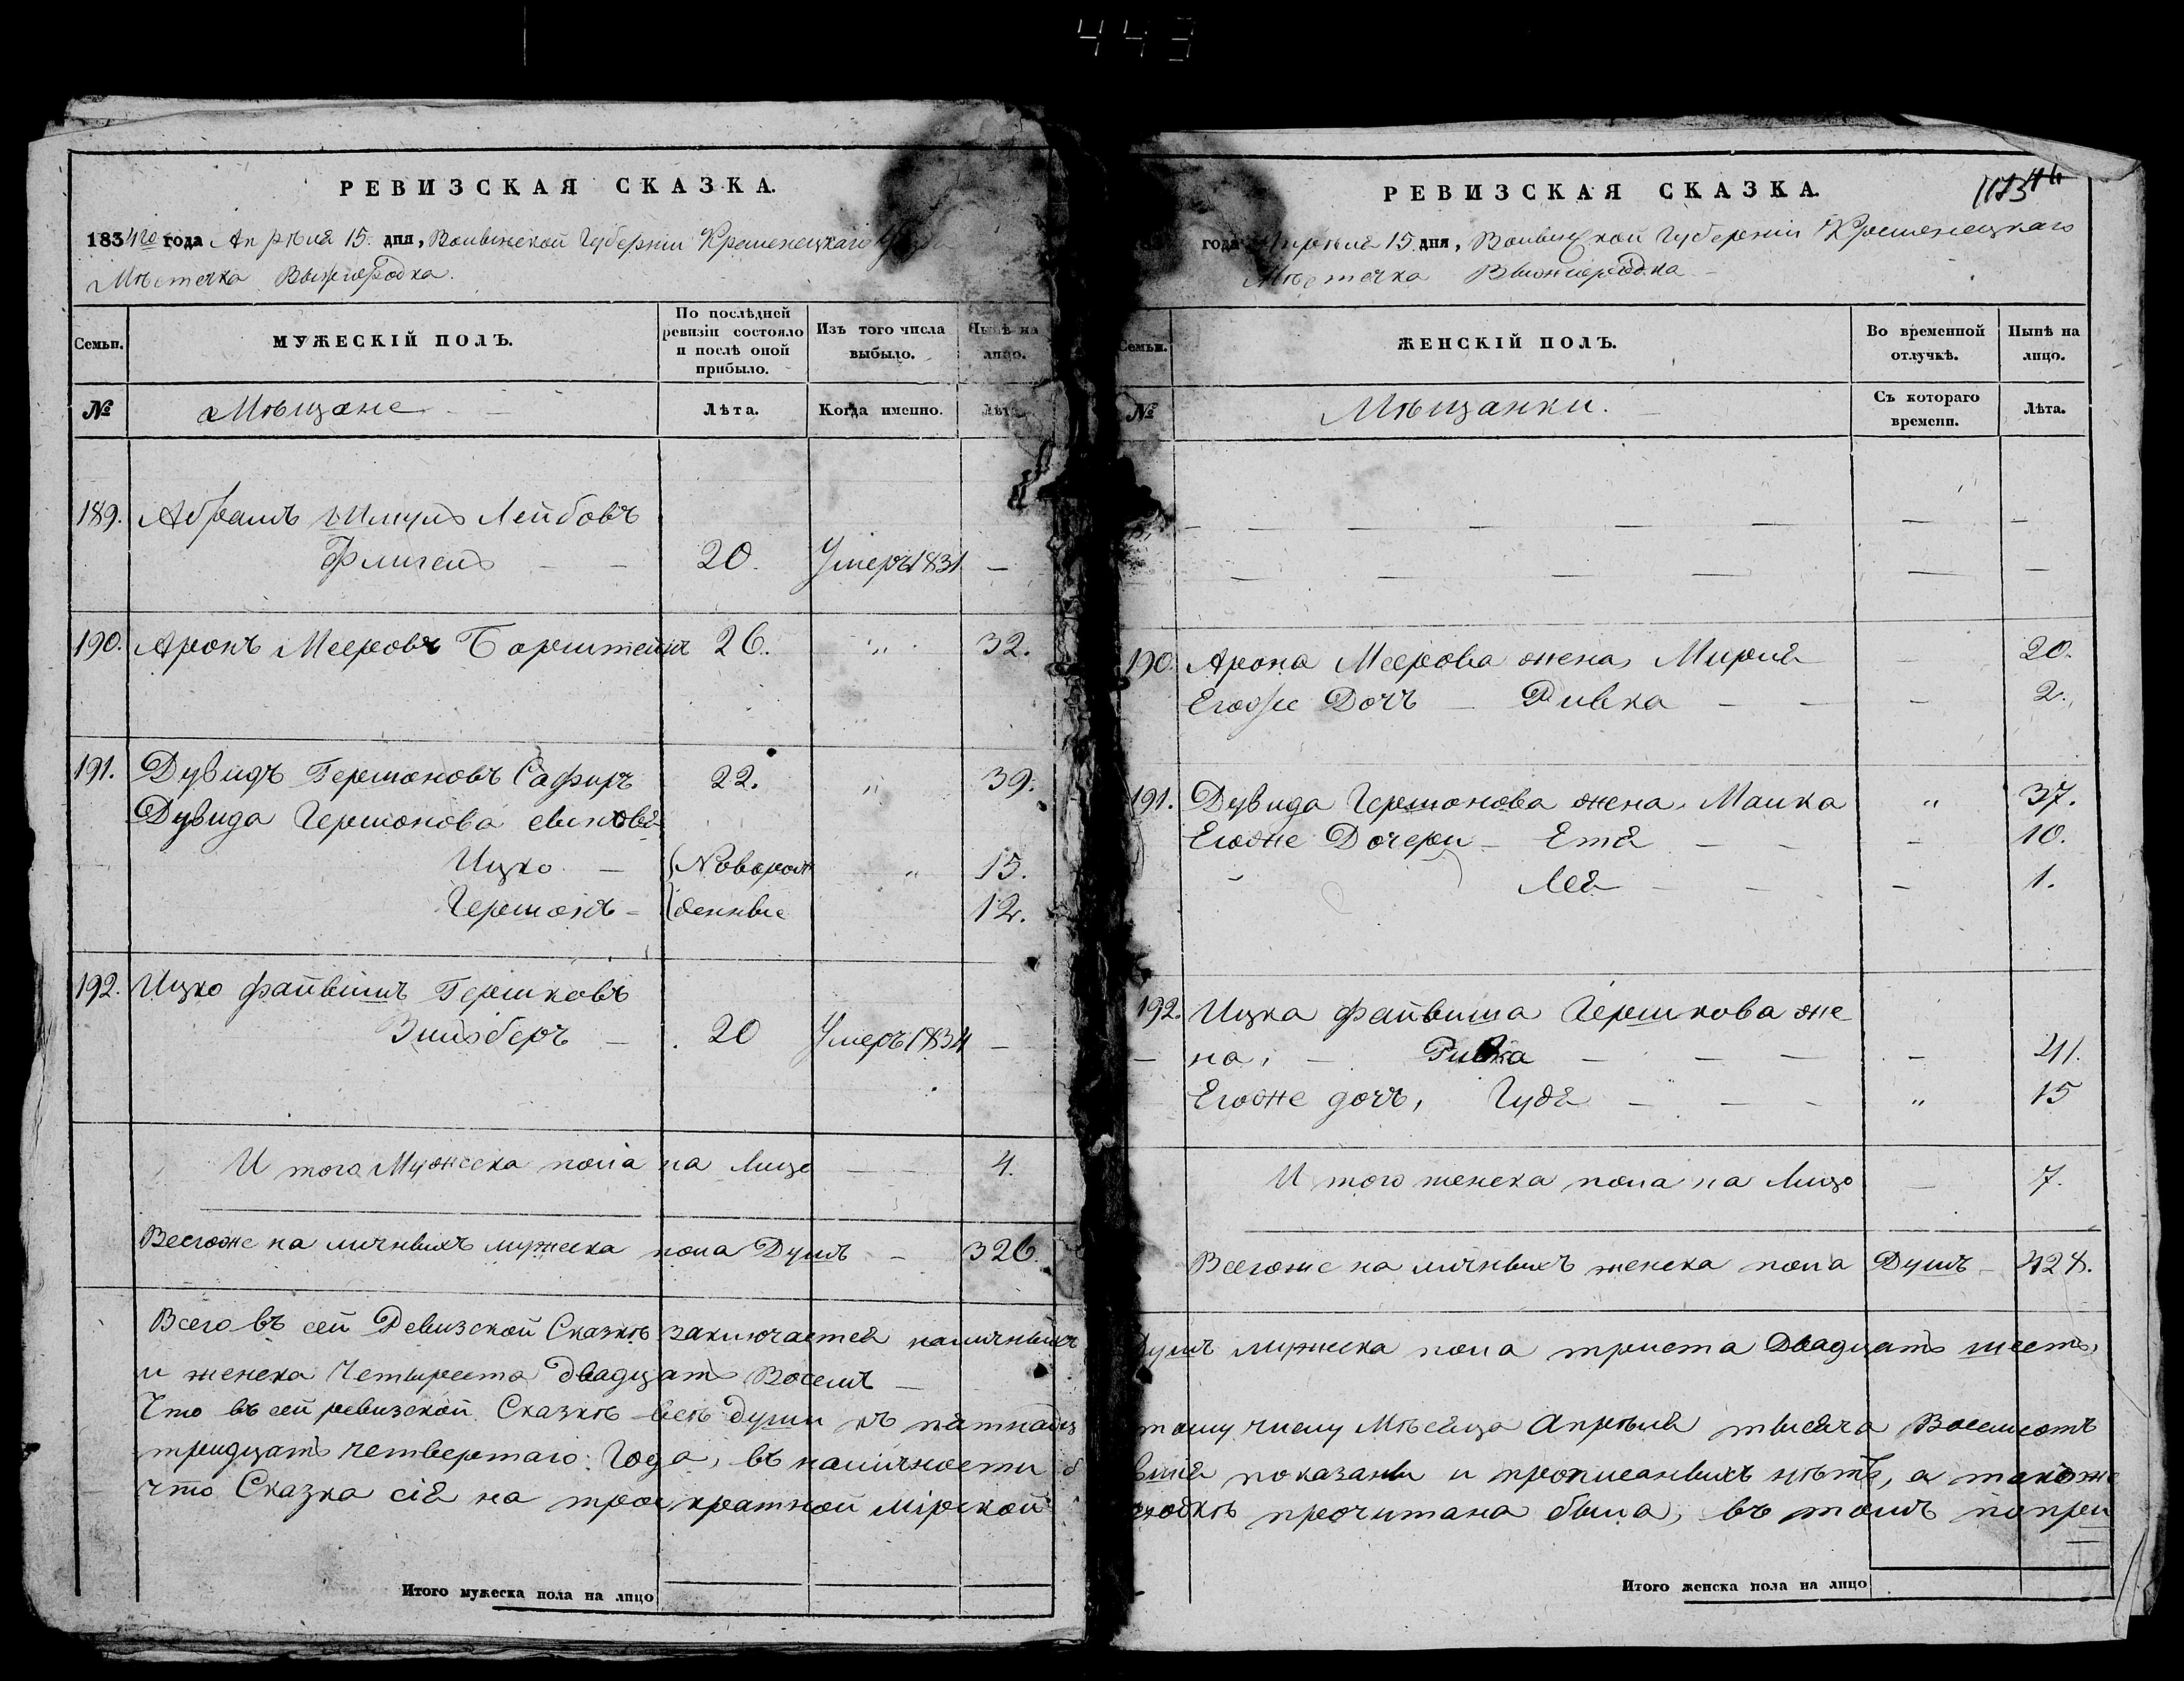 443
РЕВИЗСКАЯ СКАЗКА.
1834го года Апрѣля 15. дня, Волынской Губерніи Кременецкаго
Мѣстечка Вышгородка.
Семьи.
МУЖЕСКІЙ ПОЛЪ.
По послѣдней ревизіи состояло и послѣ оной прибыло.
Изъ того числа выбыло.
Нынѣ на лицо.
№
Мѣщане
Лѣта.
Когда именно.
Лѣта
189. Абрамъ Шмуль Лейбовъ
Флигель — — 20. Умеръ 1831 —
190. Аронъ Мееровъ Борштейнъ 26. „ 32.
191. Дувидъ Гершоновъ Сафиръ 22. „ 39.
Дувида Гершонова сыновья
Ицко — Новорож „ 15.
Гершонъ — денные 12.
192. Ицко Файвишъ Гершковъ
— 20 Умеръ 1834 —
И того Мужеска пола на лицо — — 4.
Всегоже на личныхъ мужеска пола Душъ — 326.
Всего въ сей Ревизской Сказкѣ заключается наличныхъ
и женска Четыреста двадцать Восемь —
Что въ сей ревизской Сказкѣ всѣ души къ пятнадц
тридцать четвертаго Года, въ наличности
что Сказка сія на троекратной мірской
Итого мужеска пола на лицо
РЕВИЗСКАЯ СКАЗКА.
года Апрѣля 15 дня, Волынской Губерніи Кременецкаго
Мѣстечка Вышгородка —
Семьи.
ЖЕНСКІЙ ПОЛЪ.
Во временной отлучкѣ.
Нынѣ на лицо.
№
Мѣщанки. —
Съ котораго времени.
Лѣта.
190. Арона Меерова жена Мирля — 20.
Егоже Дочь — Ривка — — — 2.
191. Дувида Гершонова жена, Малка „ 37.
Егоже Дочери — Етя — — — 10.
Лея — — — 1.
192. Ицка Файвиша Гершкова же
— на, — Ривка — — — — 41.
Егоже дочь, Гудя — — — „ 15
И того женска пола на лицо — 7.
Всегоже на личныхъ женска пола Душъ — 428.
Душъ мужеска пола триста Двадцать шесть,
тому числу Мѣсяца Апрѣля тысяча Восемсотъ
показаны и прописныхъ нѣтъ, а также
сходкѣ прочитана была, въ томъ попри
Итого женска пола на лицо